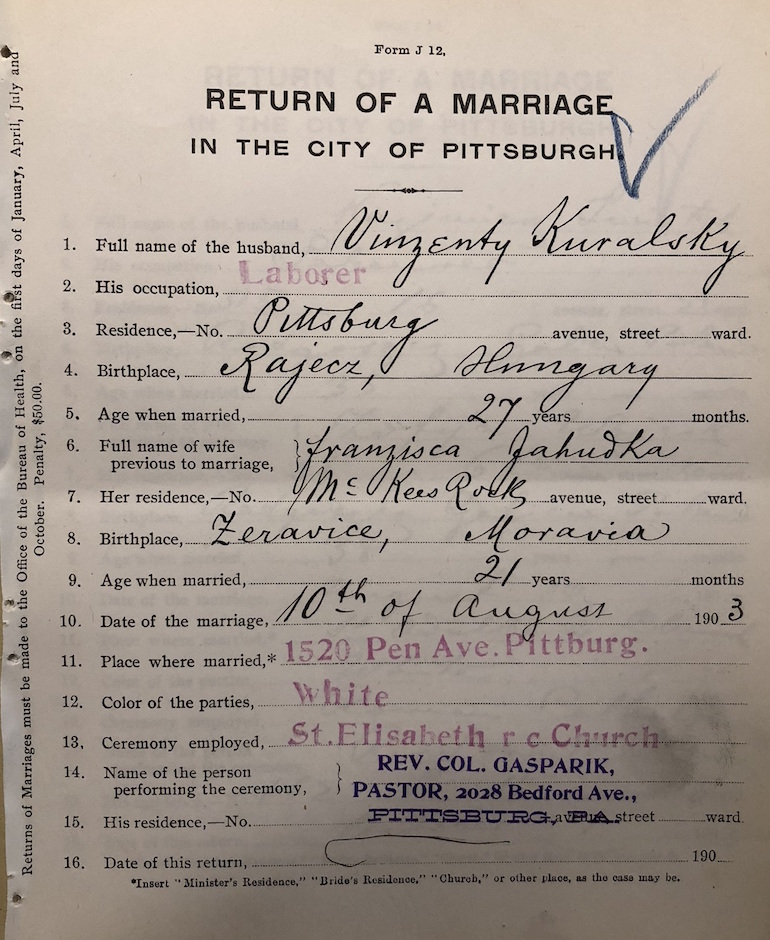 Form J 12,
RETURN OF A MARRIAGE
IN THE CITY OF PITTSBURGH.
1. Full name of the husband, Vinzenty Kuralsky
2. His occupation, Laborer
3. Residence,—No. Pittsburg avenue, street ward.
4. Birthplace, Rajecz, Hungary
5. Age when married, 27 years months.
6. Full name of wife previous to marriage, } Franzisca Jahudka
7. Her residence,—No. Mc Kees Rock avenue, street ward.
8. Birthplace, Zeravice, Moravia
9. Age when married, 21 years months
10. Date of the marriage, 10th of August 1903
11. Place where married,* 1520 Pen Ave. Pittburg.
12. Color of the parties, White
13. Ceremony employed, St. Elisabeth r c Church
14. Name of the person performing the ceremony, } REV. COL. GASPARIK,
PASTOR, 2028 Bedford Ave.,
15. His residence,—No. PITTSBURG, PA. avenue, street ward.
16. Date of this return, 190
*Insert "Minister's Residence," "Bride's Residence," "Church," or other place, as the case may be.
Returns of Marriages must be made to the Office of the Bureau of Health, on the first days of January, April, July and
October. Penalty, $50.00.